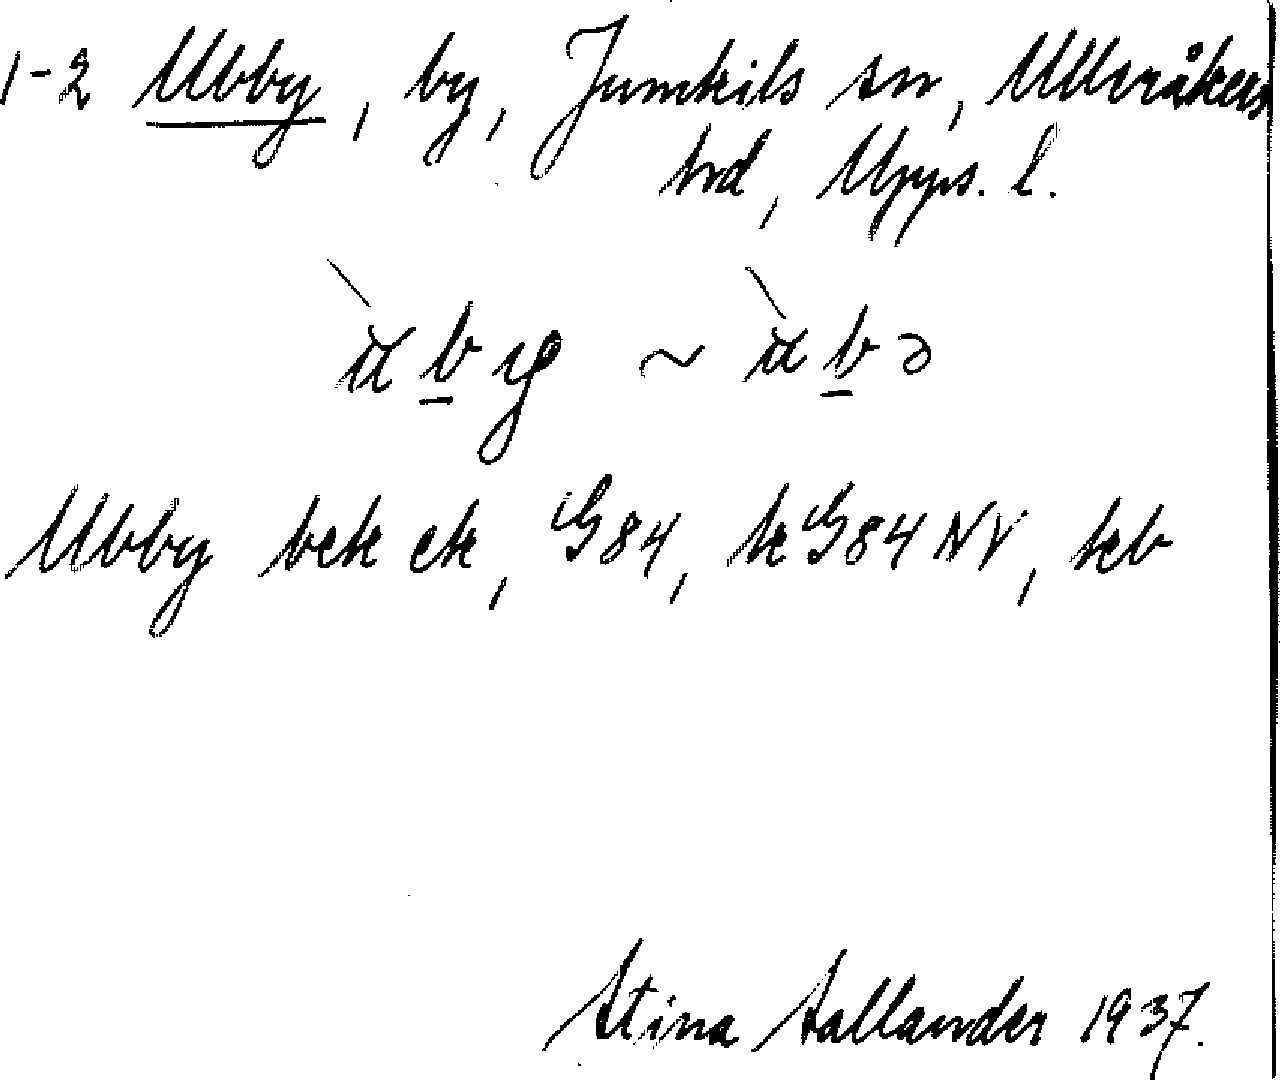 1-2 Ubby, by, Jumkils sn, Ulleråkers
hd, Upps. l.
Ubby bek ek, G84, kG84 NV, kb
Stina Sallander 1937.